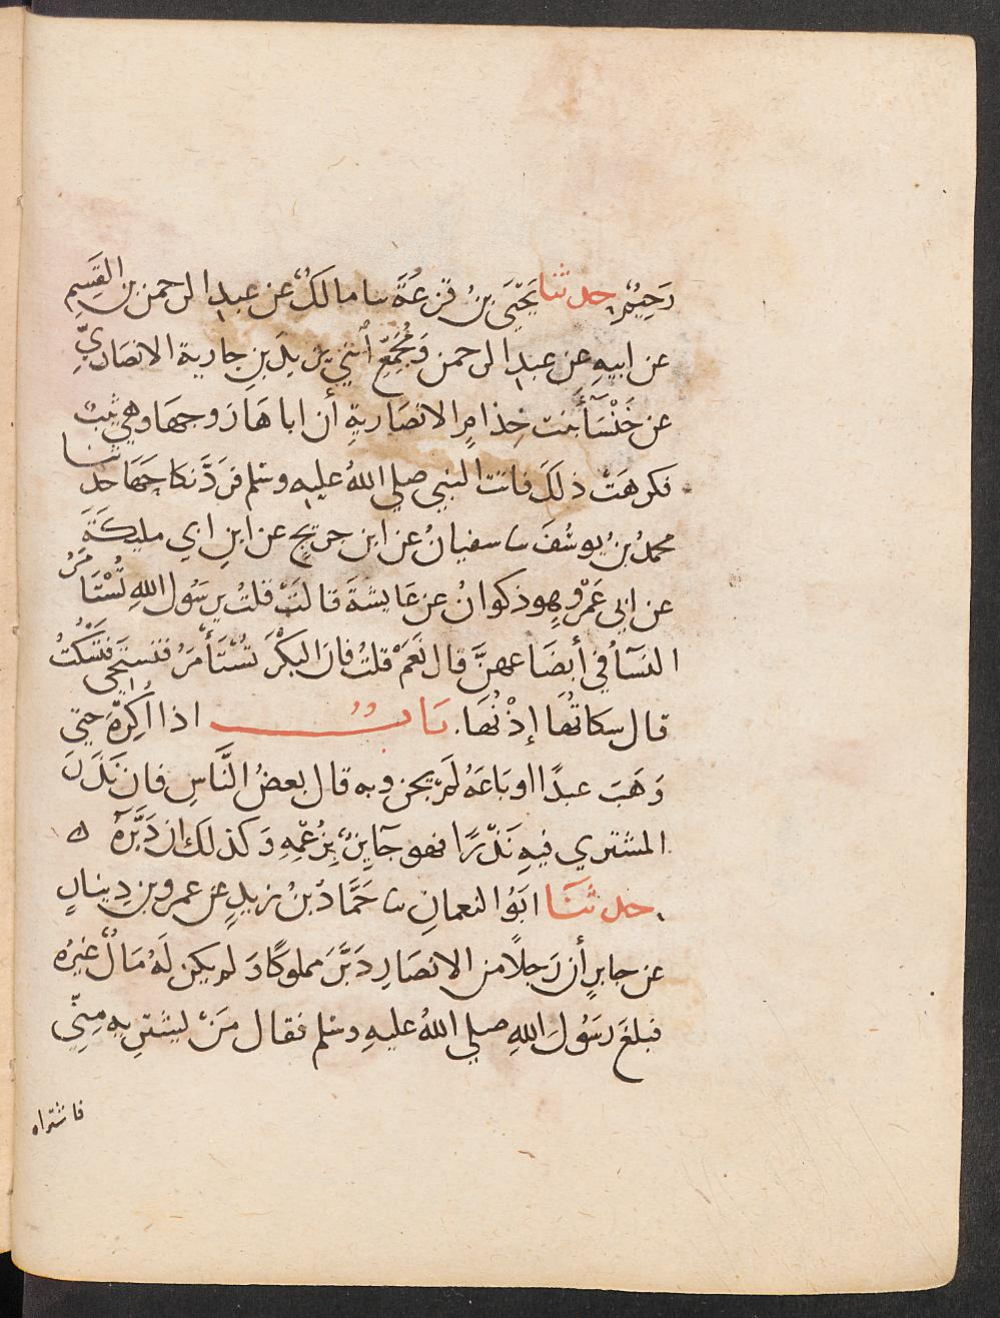 رَحِيْمٌ، حدثنا يَحْيَى بنُ قَزعَةَ سا مالكٌ عن عبدِ الرحمن بن القَسِمِ
عن ابيهِ عن عبدِ الرحمن وَمُجَمِّعٍ ابني يزيدَ بنِ جارية الانصاريِّ
عن خَنْسَآءَ بنت خِذامٍ الانصَاريةِ أن اباهَا زَوجهَا وهي ثيبٌ
فكرهَتْ ذلكَ فاتت النبي صلي اللهُ عليه وسلم فرَدَّ نكاحَهَا حدثنا
محمدُ بنُ يوسُفَ سا سفيانُ عن ابن جريجٍ عن ابنِ ابي مليكَةَ
عن ابي عَمْرٍو هو ذكوانُ عن عَايشةَ قالتْ قلتُ يرسُول اللهِ تُسْتَامَرُ
النسَآءُ في أبضَاعهنَّ قال نَعَمْ قلتُ فانَ البكْرَ تُسْتَأمَرُ فتستَحْيى فتسْكُتُ
قال سكاتُهَا إذْنُهَا. بَابٌ اذا اكرِهَ حتي
وَهَبَ عبدًا او بَاعَهُ لَمْ يجز وبه قال بعضُ النَّاسِ فان نَذَرَ
المشتري فيهِ نَذْرًا فهو جَايِزٌ بِزَعْمِهِ وَكذلكَ ان دَبَّرَهُ ه
حدثنَا ابَوُ النعمانِ سا حَمَّادُ بنُ زيدٍ عن عمرو بن دِينارٍ
عن جابرٍ أن رَجلاً من الانصَارِ دَبَّرَ مملوكًا وَلم يكن لَهُ مَالٌ غيرُه
فبلغَ رسُولَ اللهِ صلي اللهُ عليهِ وسلم فقال مَنْ يشتريهِ مِنِّي
فاشتراه